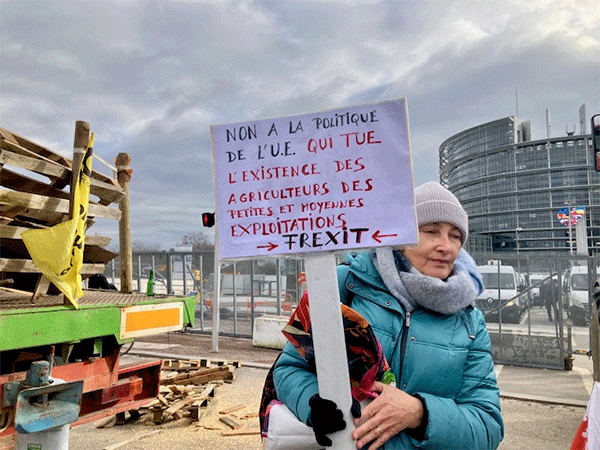 NON A LA POLITIQUE
DE L'U.E. QUI TUE
L'EXISTENCE DES
AGRICULTEURS DES
PETITES ET MOYENNES
EXPLOITATIONS
→ FREXIT ←